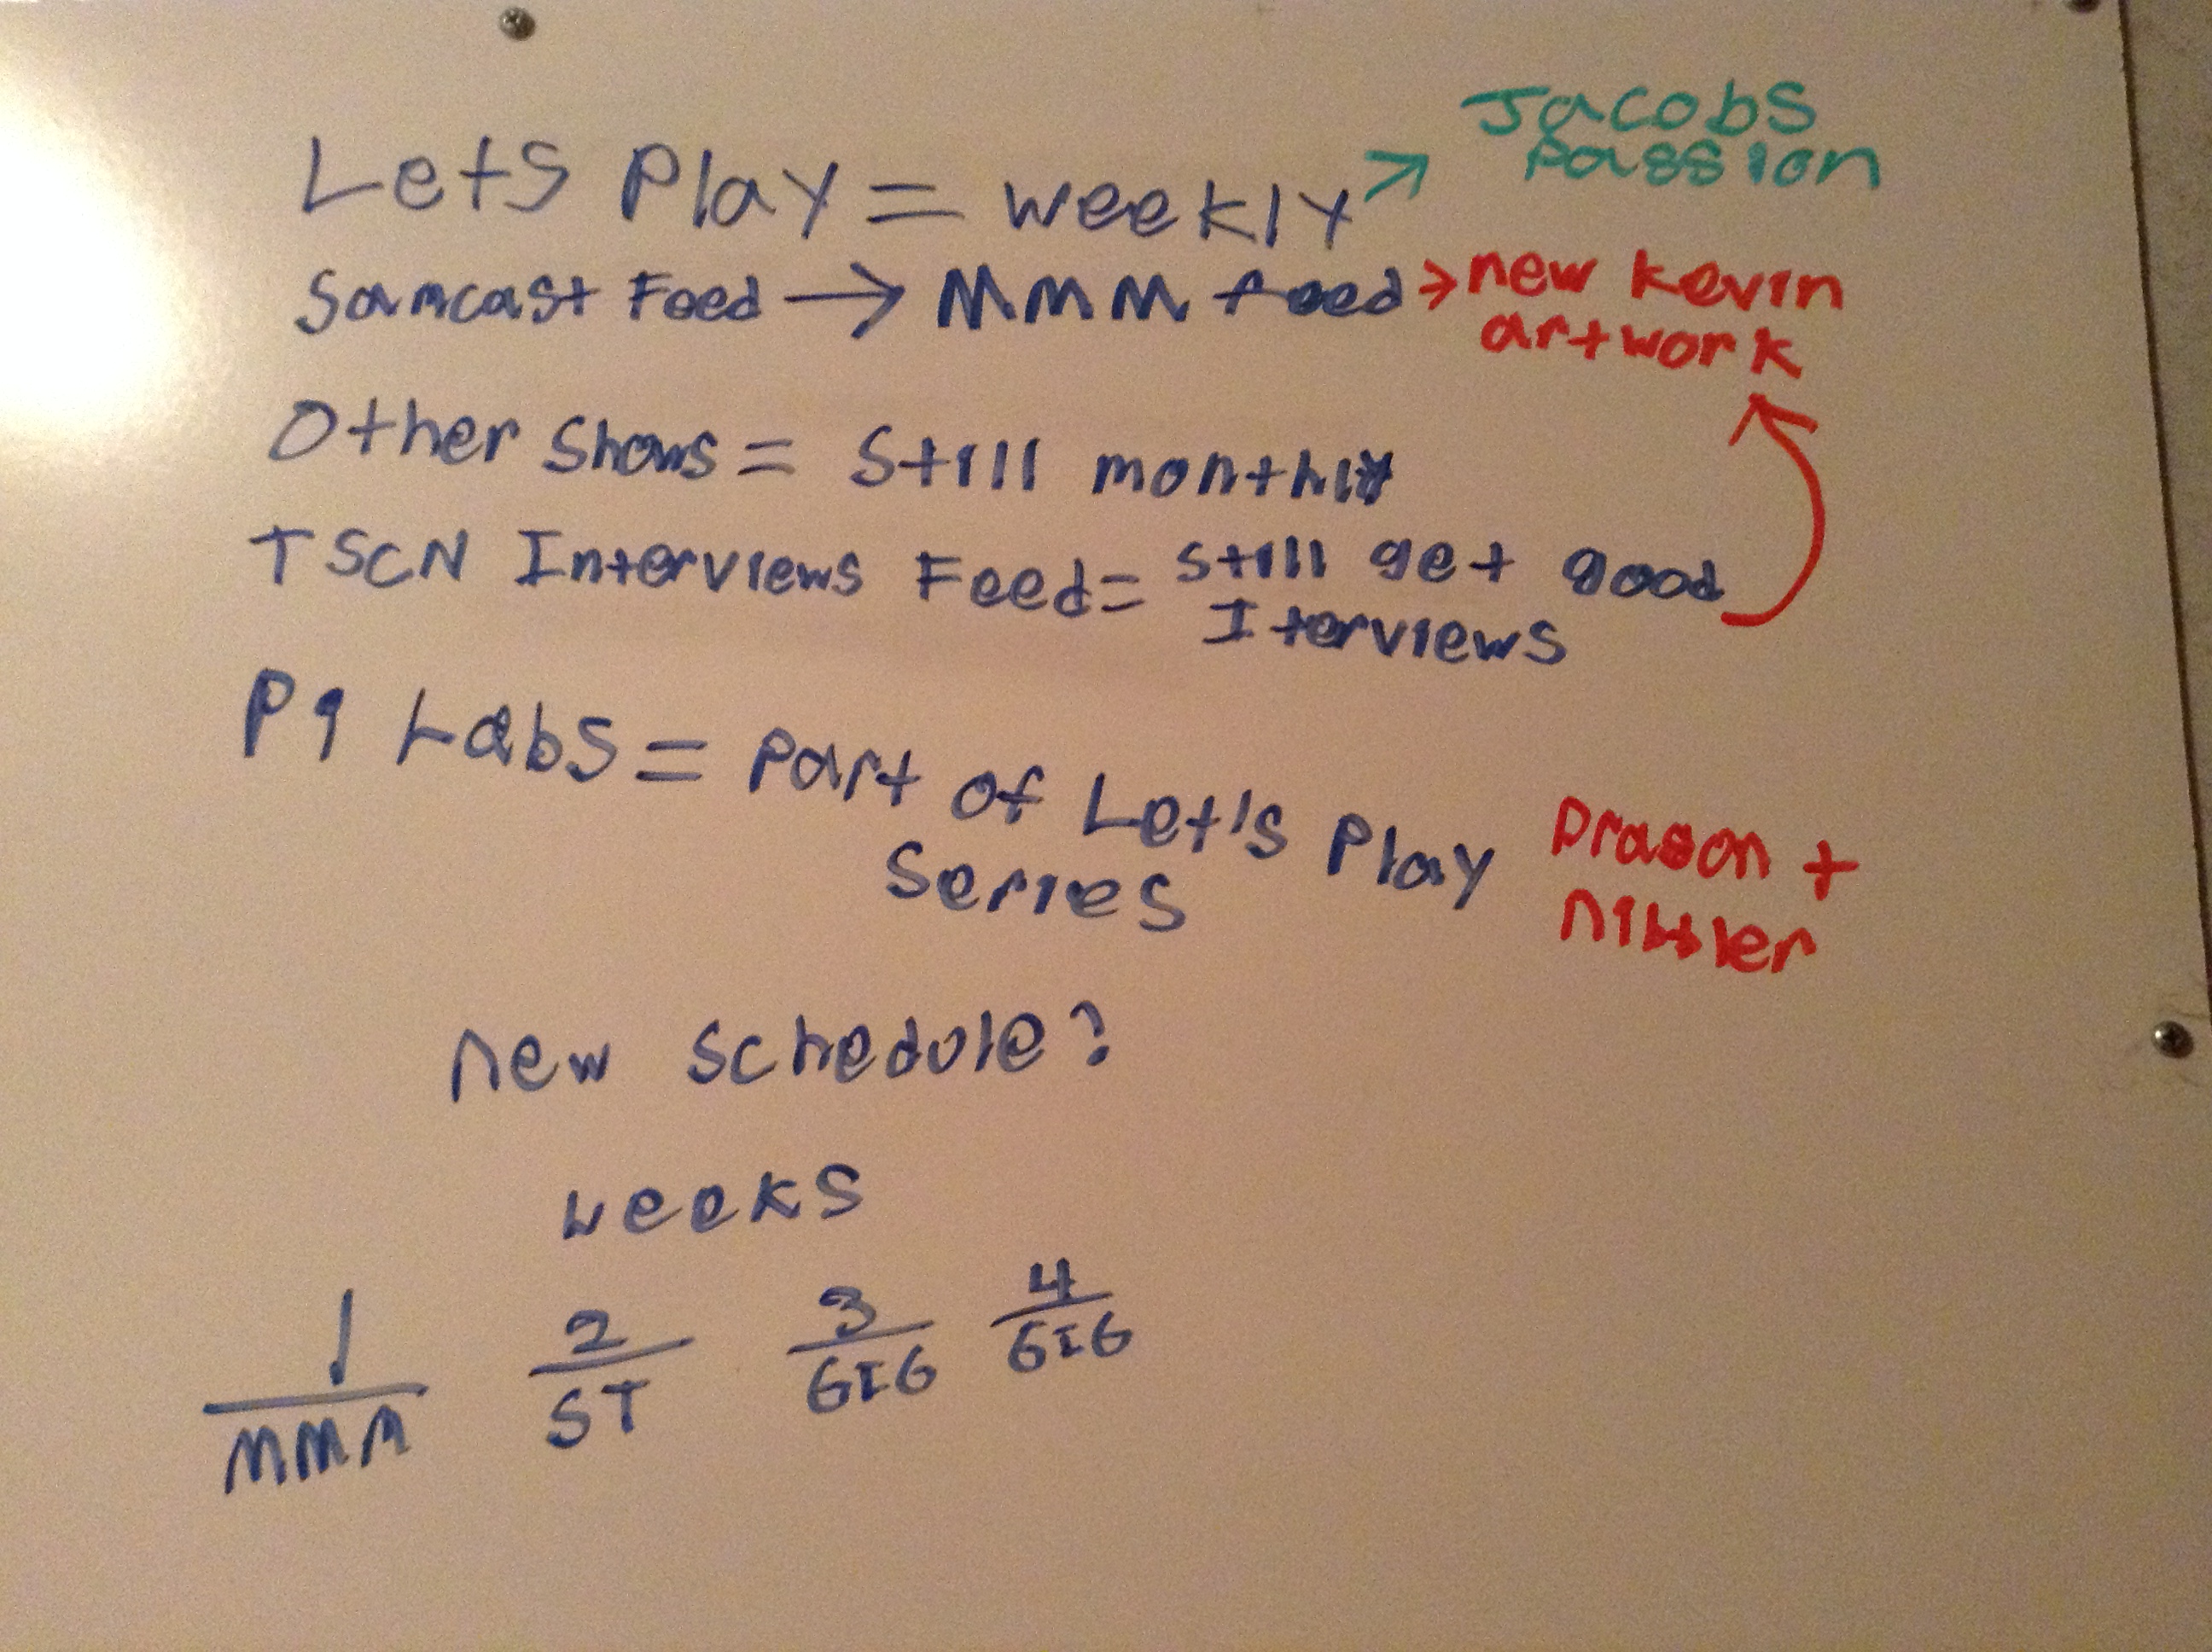 Lets Play = weekly > Jacobs
passion
Samcast Feed → MMM feed > new kevin
artwork
Other Shows = Still monthly
TSCN Interviews Feed = still get good
Iterviews
P9 Labs = Part of Let's Play
Series
Dragon +
new schedule?
weeks
1 2 3 4
MMM ST GIG GIG